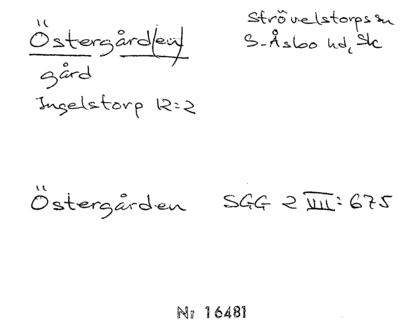 Östergård(en) Strövelstorps sn
gård S-Åsbo hd, Sk
Ingelstorp 12:2
Östergården SGG 2 VII:675
Nr 16481